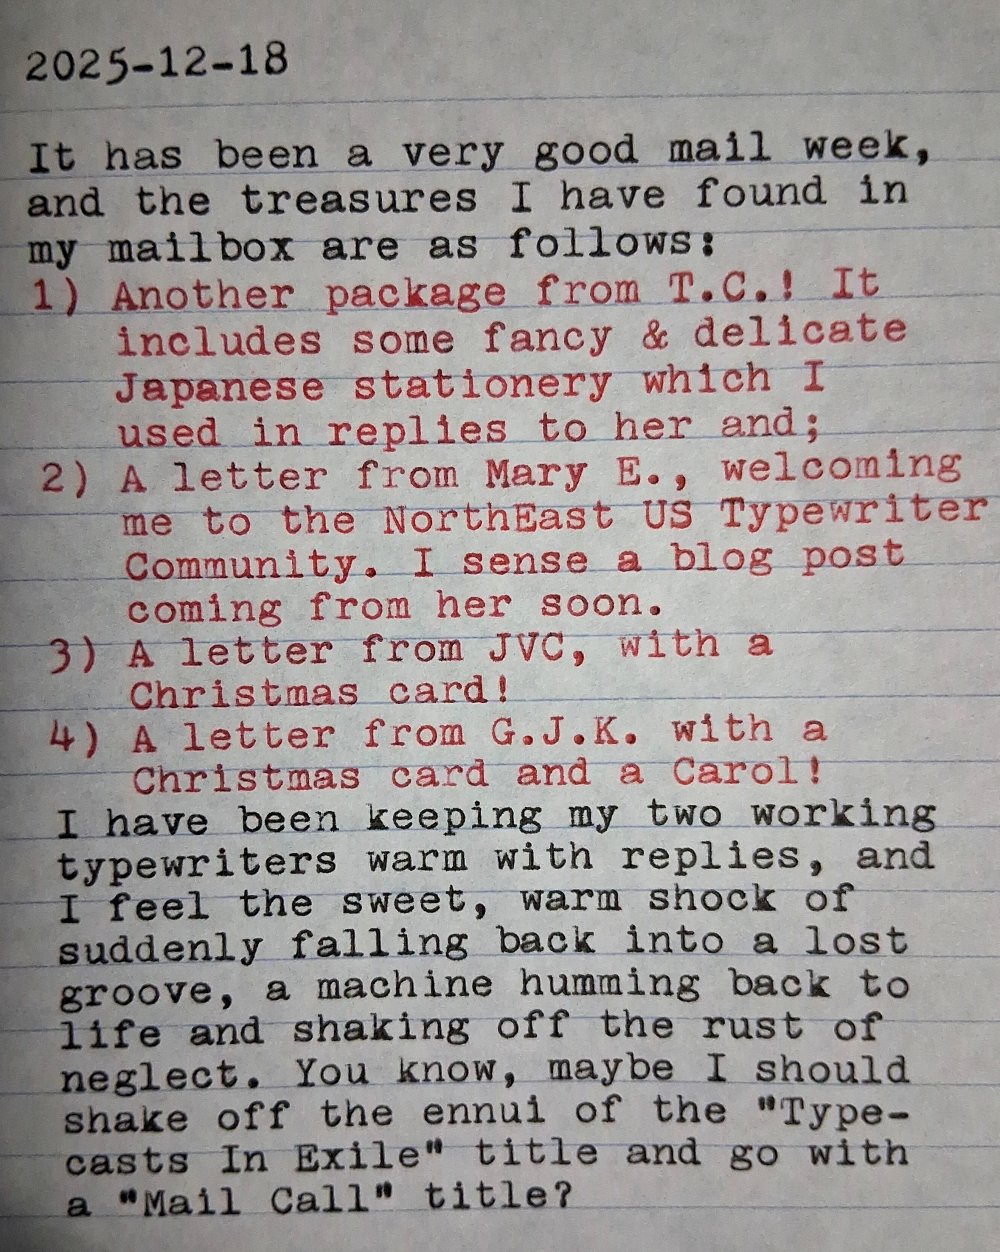 2025-12-18
It has been a very good mail week,
and the treasures I have found in
my mailbox are as follows:
1) Another package from T.C.! It
includes some fancy & delicate
Japanese stationery which I
used in replies to her and;
2) A letter from Mary E., welcoming
me to the NorthEast US Typewriter
Community. I sense a blog post
coming from her soon.
3) A letter from JVC, with a
Christmas card!
4) A letter from G.J.K. with a
Christmas card and a Carol!
I have been keeping my two working
typewriters warm with replies, and
I feel the sweet, warm shock of
suddenly falling back into a lost
groove, a machine humming back to
life and shaking off the rust of
neglect. You know, maybe I should
shake off the ennui of the "Type-
casts In Exile" title and go with
a "Mail Call" title?